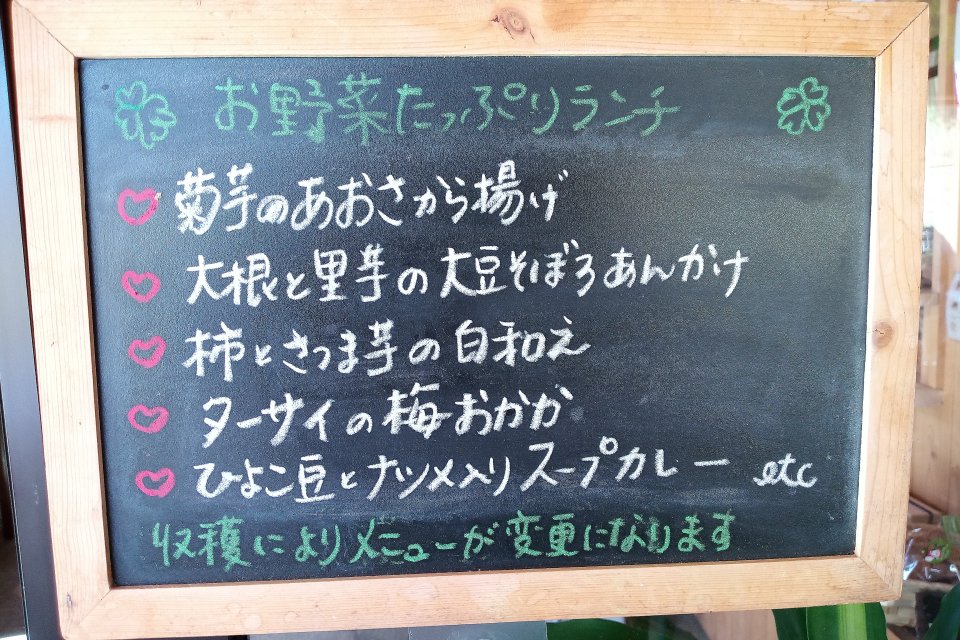 お野菜たっぷりランチ
菊芋のあおさから揚げ
大根と里芋の大豆そぼろあんかけ
柿とさつま芋の白和え
ターサイの梅おかか
ひよこ豆とナツメ入りスープカレー etc
収穫によりメニューが変更になります